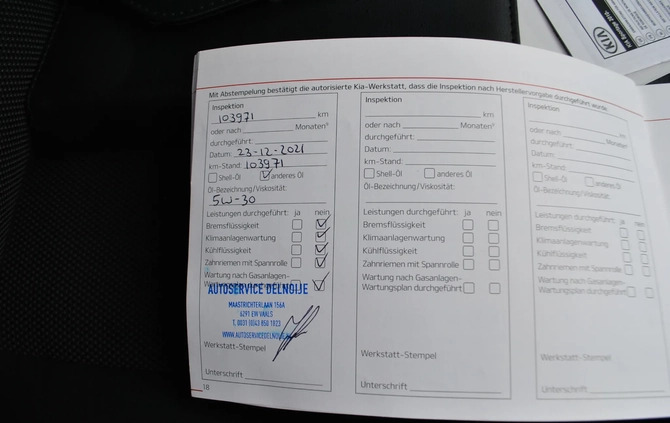 Mit Abstempelung bestätigt die autorisierte Kia-Werkstatt, dass die Inspektion nach Herstellervorgabe durchgeführt wurde.
Inspektion
103971 km
oder nach Monaten⁵
durchgeführt:
Datum: 23-12-2021
km-Stand: 103971
Shell-Öl anderes Öl
Öl-Bezeichnung/Viskosität:
5W-30
Leistungen durchgeführt: ja nein
Bremsflüssigkeit
Klimaanlagenwartung
Kühlflüssigkeit
Zahnriemen mit Spannrolle
Wartung nach Gasanlagen-
Wartungsplan durchgeführt
AUTOSERVICE DELNOIJE
MAASTRICHTERLAAN 156A
6291 EW VAALS
T. 0031 (0)43 850 1023
WWW.AUTOSERVICEDELNOIJE.NL
Werkstatt-Stempel
Unterschrift
18
Inspektion
km
oder nach Monaten⁵
durchgeführt:
Datum:
km-Stand:
Shell-Öl anderes Öl
Öl-Bezeichnung/Viskosität:
Leistungen durchgeführt: ja nein
Bremsflüssigkeit
Klimaanlagenwartung
Kühlflüssigkeit
Zahnriemen mit Spannrolle
Wartung nach Gasanlagen-
Wartungsplan durchgeführt
Werkstatt-Stempel
Unterschrift
Inspektion
km
oder nach Monaten⁵
durchgeführt:
Datum:
km-Stand:
Shell-Öl anderes Öl
Öl-Bezeichnung/Viskosität:
Leistungen durchgeführt: ja nein
Bremsflüssigkeit
Klimaanlagenwartung
Kühlflüssigkeit
Zahnriemen mit Spannrolle
Wartung nach Gasanlagen-
Wartungsplan durchgeführt
Werkstatt-Stempel
Unterschrift
KIA